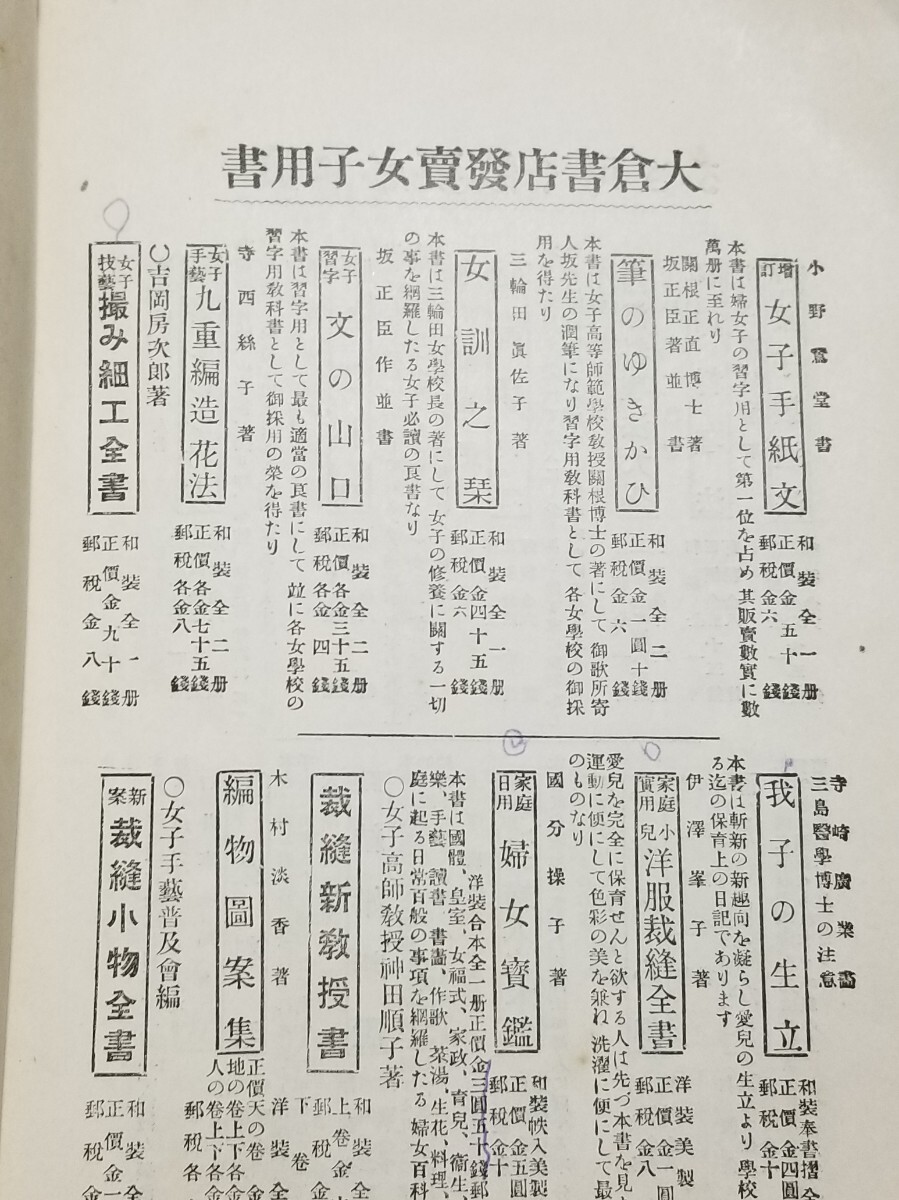 大倉書店發賣女子用書
小野鵞堂書
增訂 女子手紙文
和裝全一册
正價金五十錢
郵税金六錢
本書は婦女子の習字用として第一位を占め其販賣數實に數
萬册に至れり
關根正直博士著
坂正臣著並書
筆のゆきかひ
和裝全二册
正價金一圓十錢
郵税金六錢
本書は女子高等師範學校敎授關根博士の著にして御歌所寄
人坂先生の潤筆になり習字用敎科書として各女學校の御採
用を得たり
三輪田眞佐子著
女訓之栞
和裝全一册
正價金四十五錢
郵税金六錢
本書は三輪田女學校長の著にして女子の修養に關する一切
の事を網羅したる女子必讀の良書なり
坂正臣作並書
女子習字 文の山口
和裝全二册
正價各金三十五錢
郵税各金四錢
本書は習字用として最も適當の良書にして竝に各女學校の
習字用敎科書として御採用の榮を得たり
寺西絲子著
女子手藝 九重編造花法
和裝全二册
正價各金七十五錢
郵税各金八錢
〇吉岡房次郎著
女子技藝 撮み細工全書
和裝全一册
正價金九十錢
郵税金八錢
寺崎廣業畵
三島醫學博士の注意
我子の生立
和裝奉書摺全
正價金四圓
郵税金十
本書は斬新の新趣向を凝らし愛兒の生立より學校
る迄の保育上の日記であります
伊澤峯子著
家庭實用 小兒洋服裁縫全書
洋裝美製
正價金一圓
郵税金八
愛兒を完全に保育せんと欲する人は先づ本書を見
運動に便にして色彩の美を兼ね洗濯に便にして最
のものなり
國分操子著
家庭日用 婦女寶鑑
和裝帙入美製
正價金五圓
郵税金十
洋裝合本全一册正價金三圓五十錢郵
本書は國體、皇室、女福式、家政、育兒、衞生、
樂、手藝、讀書、書畵、作歌、茶湯、生花、料理、
庭に起る日常百般の事項を網羅したる婦女百科
〇女子高師敎授神田順子著
裁縫新敎授書
和裝
上卷金
郵税
下卷
木村淡香著
編物圖案集
洋裝全
正價天の卷金
地の卷上下各金
人の卷上下各金
郵税各
〇女子手藝普及會編
新案 裁縫小物全書
和裝全
正價金一
郵税金